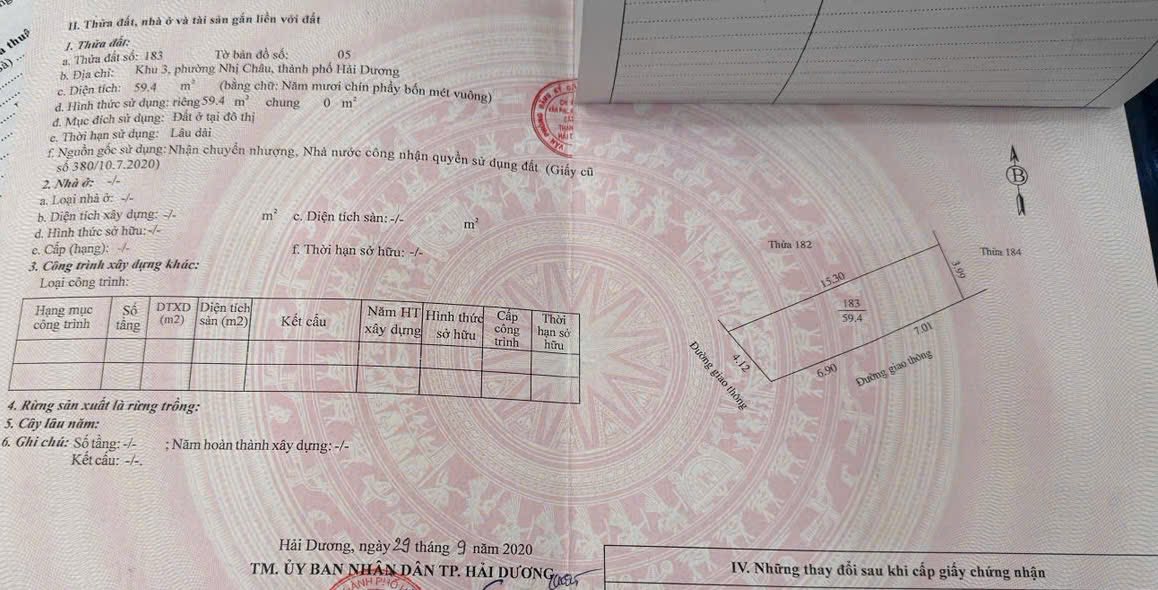 II. Thửa đất, nhà ở và tài sản gắn liền với đất
1. Thửa đất:
a. Thửa đất số: 183 Tờ bản đồ số: 05
b. Địa chỉ: Khu 3, phường Nhị Châu, thành phố Hải Dương
c. Diện tích: 59.4 m² (bằng chữ: Năm mươi chín phẩy bốn mét vuông)
d. Hình thức sử dụng: riêng 59.4 m² chung 0 m²
đ. Mục đích sử dụng: Đất ở tại đô thị
e. Thời hạn sử dụng: Lâu dài
f. Nguồn gốc sử dụng: Nhận chuyển nhượng, Nhà nước công nhận quyền sử dụng đất (Giấy cũ
số 380/10.7.2020)
2. Nhà ở: -/-
a. Loại nhà ở: -/-
b. Diện tích xây dựng: -/- m² c. Diện tích sàn: -/- m²
d. Hình thức sở hữu: -/-
e. Cấp (hạng): -/- f. Thời hạn sở hữu: -/-
3. Công trình xây dựng khác:
Loại công trình:
Hạng mục công trình Số tầng DTXD (m2) Diện tích sàn (m2) Kết cấu Năm HT xây dựng Hình thức sở hữu Cấp công trình Thời hạn sở hữu
4. Rừng sản xuất là rừng trồng:
5. Cây lâu năm:
6. Ghi chú: Số tầng: -/- ; Năm hoàn thành xây dựng: -/-
Kết cấu: -/-.
Hải Dương, ngày 29 tháng 9 năm 2020
TM. ỦY BAN NHÂN DÂN TP. HẢI DƯƠNG
B
Thửa 182
Thửa 184
15.30
3.99
183
59.4
7.01
4.12
6.90
Đường giao thông
Đường giao thông
IV. Những thay đổi sau khi cấp giấy chứng nhận